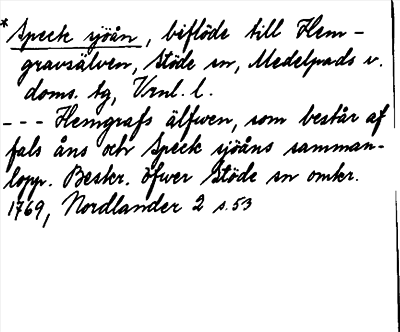 *Speck sjöån, biflöde till Hem-
gravsälven, Stöde sn, Medelpads v.
doms. tg, Vrnl. l.
--- Hemgrafs älfwen, som består af
fals åns och Speck sjöåns samman-
lopp. Beskr. öfwer Stöde sn omkr.
1769, Nordlander 2 s.53